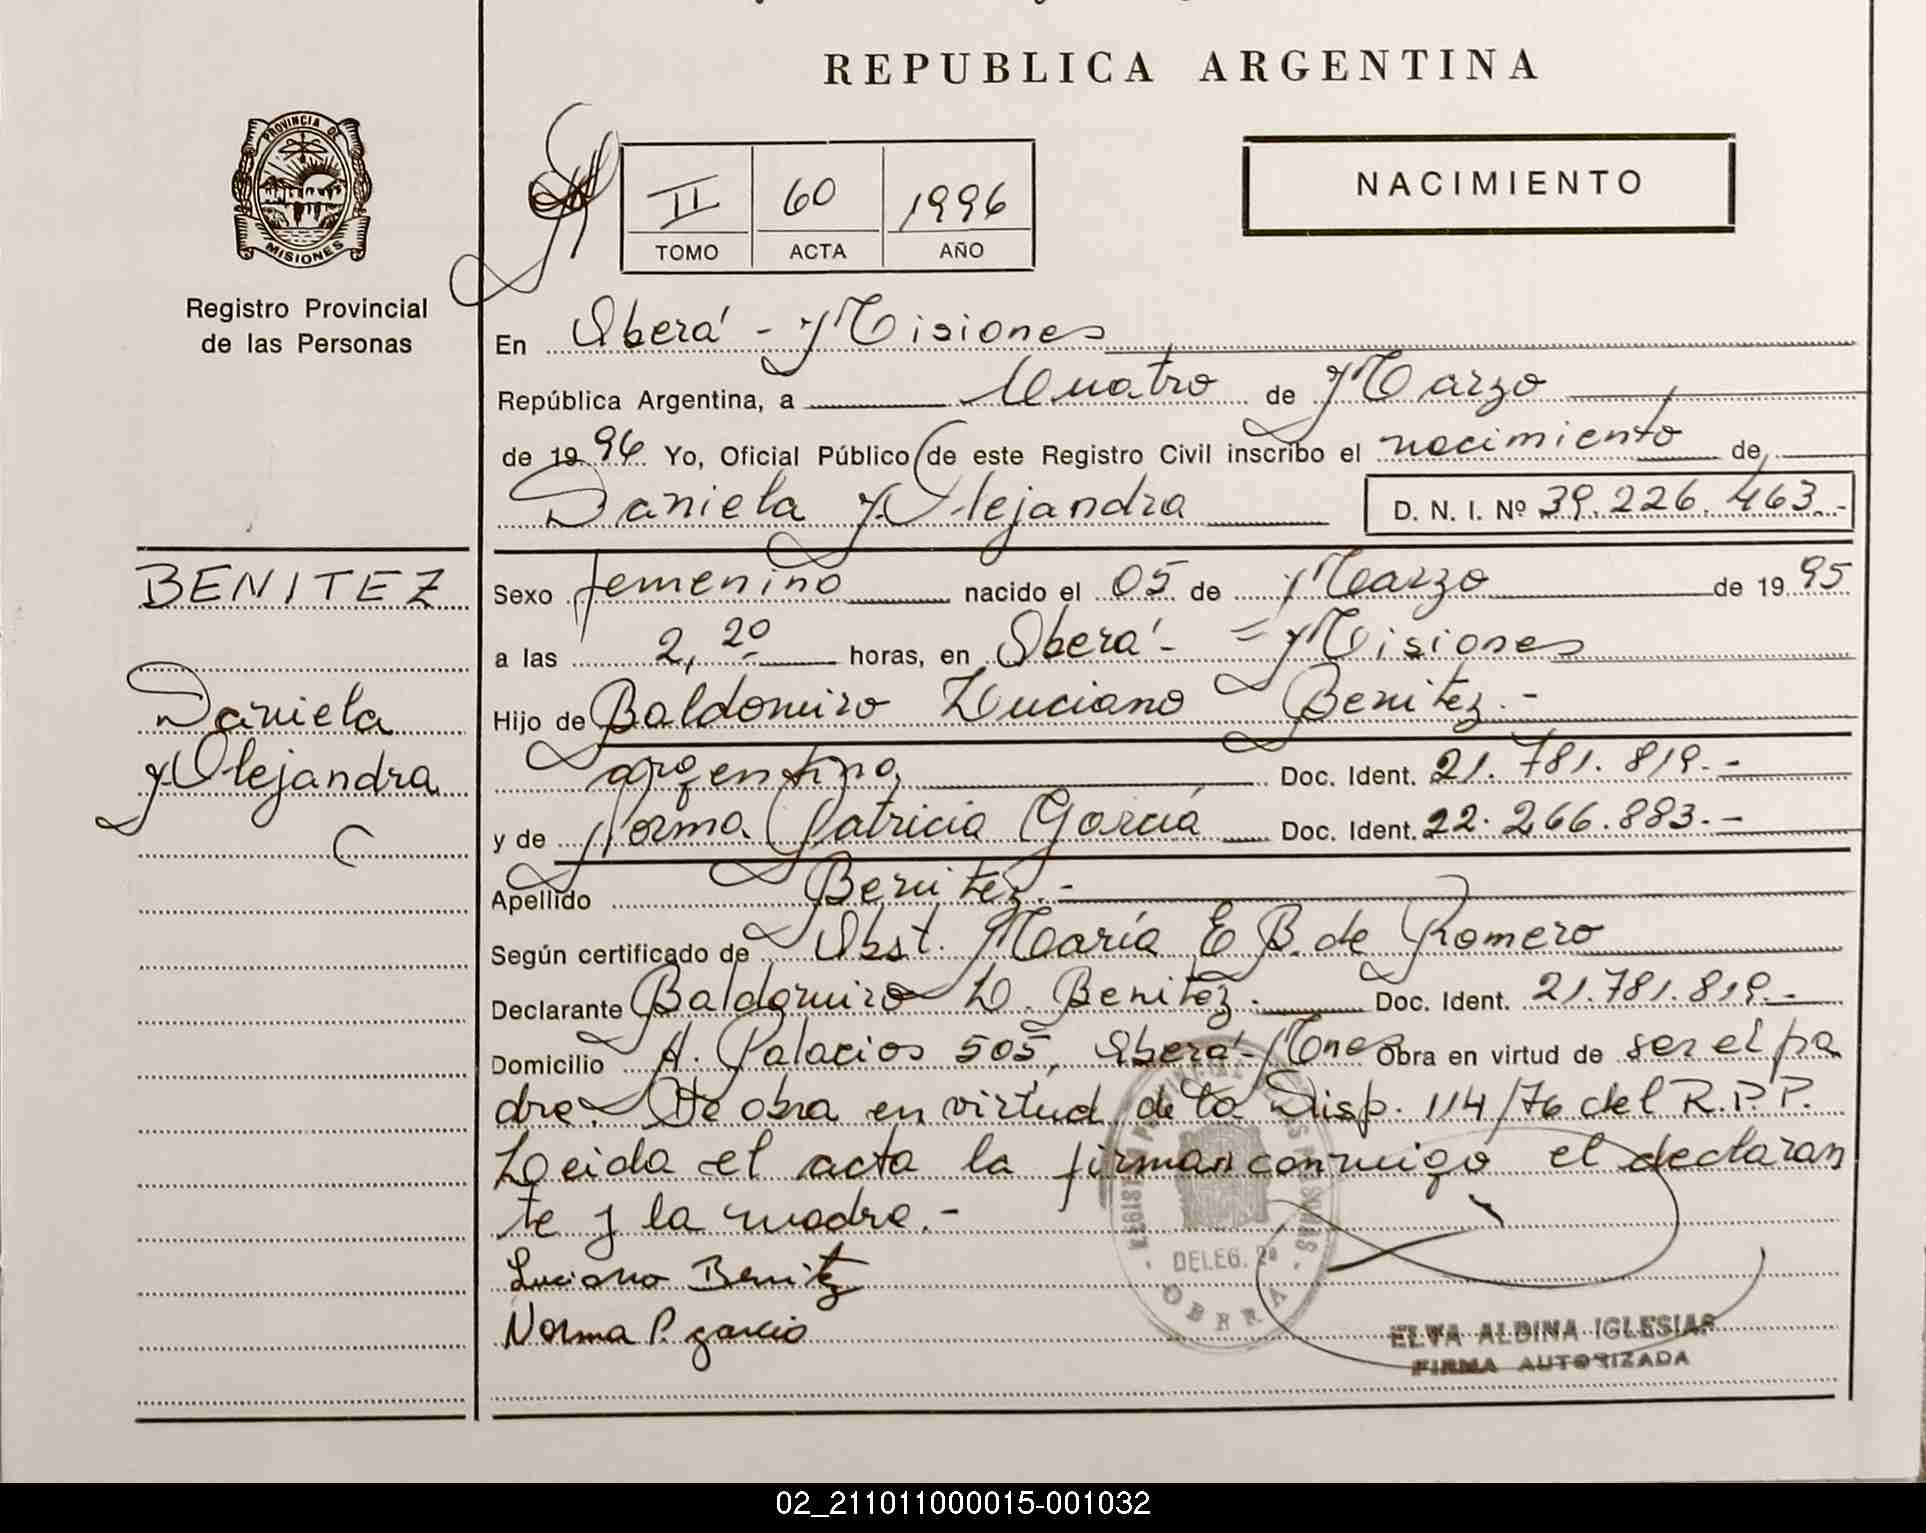 REPUBLICA ARGENTINA
PROVINCIA DE
MISIONES
Registro Provincial
de las Personas
II 60 1996
TOMO ACTA AÑO
NACIMIENTO
En Oberá - Misiones
República Argentina, a Cuatro de Marzo
de 1996 Yo, Oficial Público de este Registro Civil inscribo el nacimiento de
Daniela Alejandra D. N. I. Nº 39.226.463.-
BENITEZ
Daniela
Alejandra
Sexo femenino nacido el 05 de Marzo de 1995
a las 2,20 horas, en Oberá - Misiones
Hijo de Baldomiro Luciano Benitez.-
argentino Doc. Ident. 21.781.819.-
y de Norma Patricia García Doc. Ident. 22.266.883.-
Apellido Benitez.-
Según certificado de Obst. María E B. de Romero
Declarante Baldomiro L. Benitez. Doc. Ident. 21.781.819.-
Domicilio A. Palacios 505, Oberá-Mnes Obra en virtud de ser el pa
dre. Se obra en virtud de la Disp. 114/76 del R.P.P.
Leida el acta la firman conmigo el declaran
te y la madre.-
Luciano Benitez
Norma P. garcia
DELEG. 2ª
OBERA
ELVA ALBINA IGLESIAS
FIRMA AUTORIZADA
02_211011000015-001032